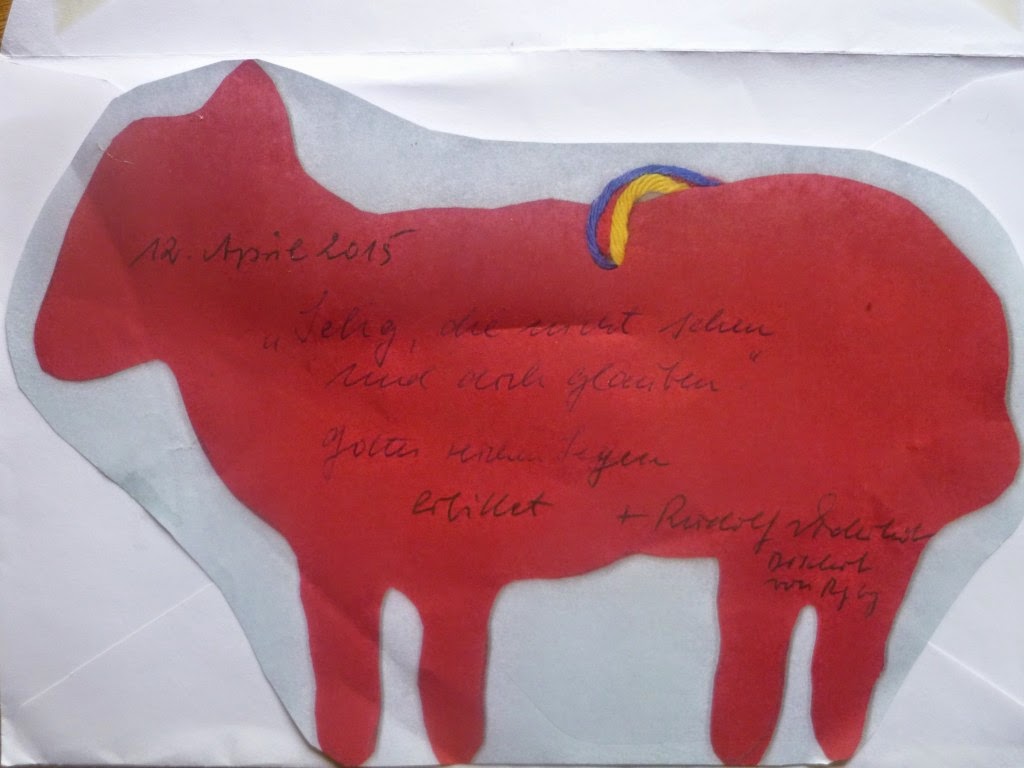 12. April 2015
„Selig, die nicht sehen
und doch glauben"
Gottes reichen Segen
erbittet + Rudolf Voderholzer
Bischof
von Rgbg